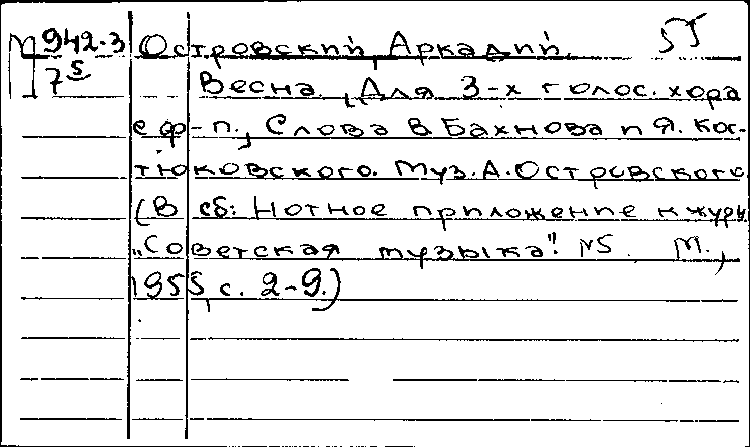 М942-3 Островский, Аркадий. 55
П7 5 Весна. Для 3-х голос. хора
с ф-п., Слова В Бахнова и Я. Кос-
тюковского. Муз. А. Островского
(В сб: Нотное приложение к журн
„Советская музыка". N5. М.,
1955, с. 2-9.)